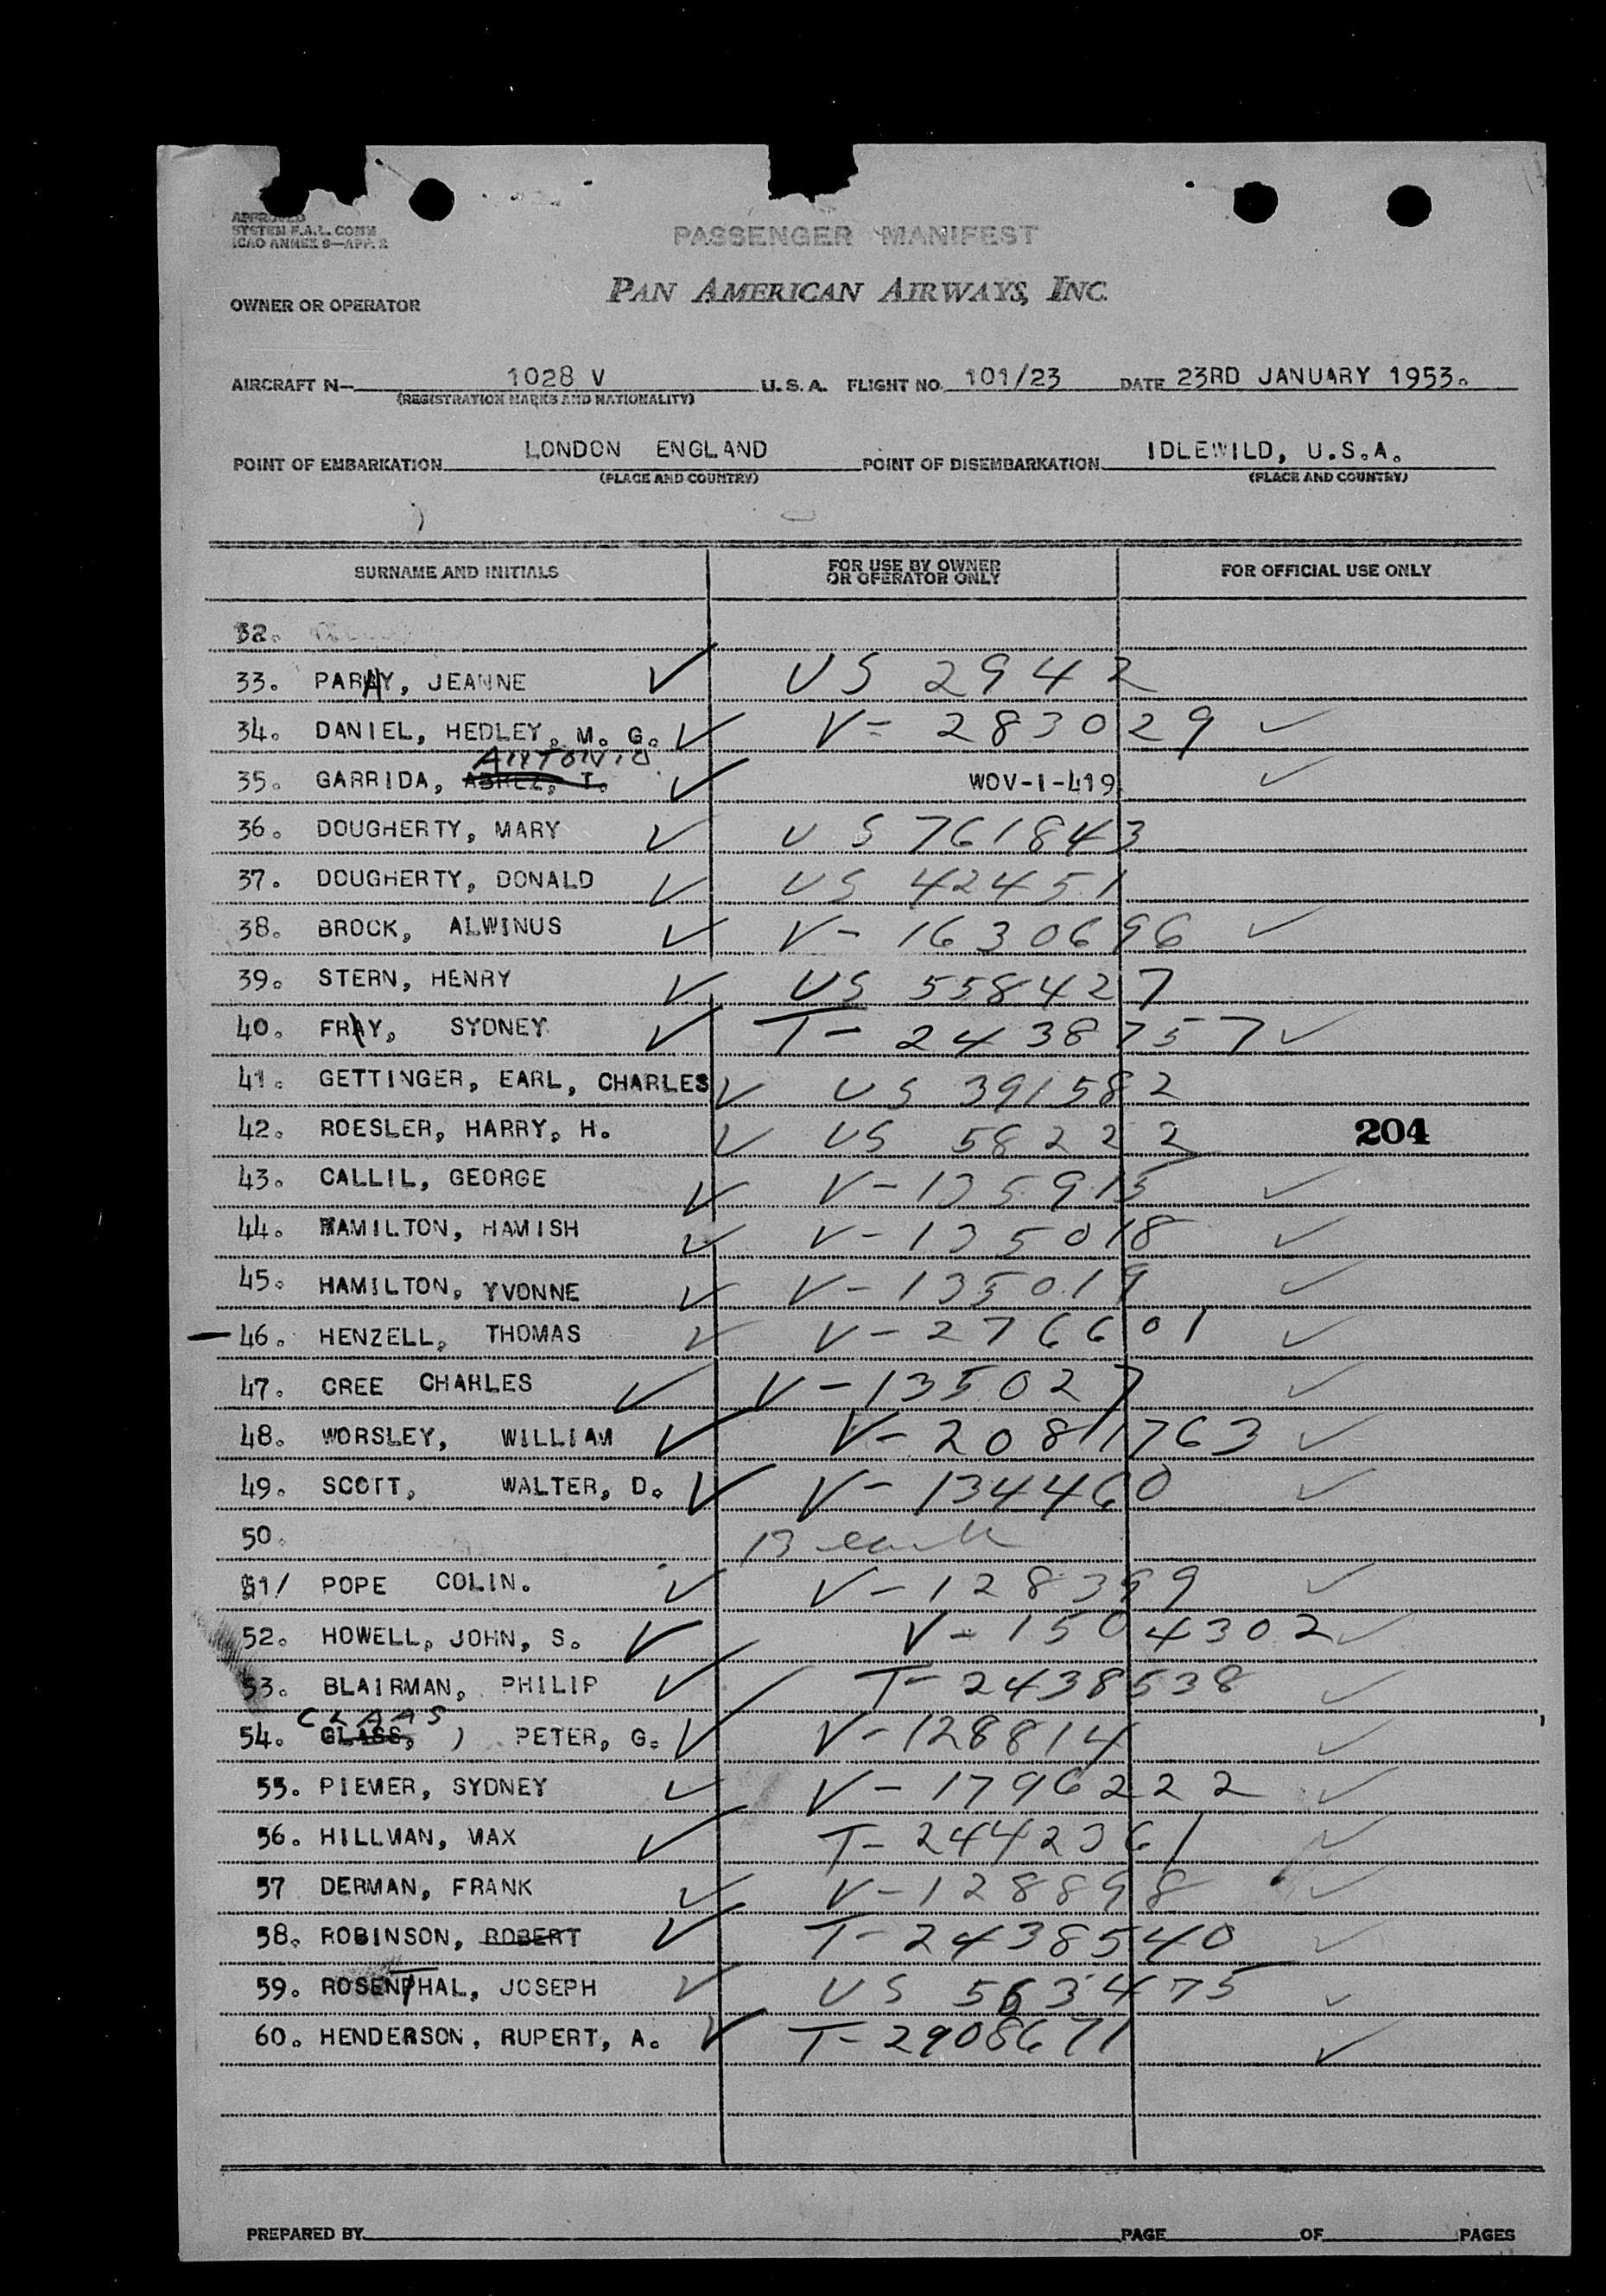 APPROVED
SYSTEM F.A.L. COMM
ICAO ANNEX 9—APP. 2
PASSENGER MANIFEST
PAN AMERICAN AIRWAYS, INC.
OWNER OR OPERATOR
AIRCRAFT N— 1028 V U.S.A. FLIGHT NO. 101/23 DATE 23RD JANUARY 1953.
(REGISTRATION MARKS AND NATIONALITY)
POINT OF EMBARKATION LONDON ENGLAND POINT OF DISEMBARKATION IDLEWILD, U.S.A.
(PLACE AND COUNTRY) (PLACE AND COUNTRY)
SURNAME AND INITIALS FOR USE BY OWNER OR OPERATOR ONLY FOR OFFICIAL USE ONLY
32.
33. PARAY, JEANNE ✓ US 2942
34. DANIEL, HEDLEY, M. G. ✓ V- 283029 ✓
ANTONIO
35. GARRIDA, ✓ WOV-I-419 ✓
36. DOUGHERTY, MARY ✓ US 761843
37. DOUGHERTY, DONALD ✓ US 42451
38. BROCK, ALWINUS ✓ V- 1630696 ✓
39. STERN, HENRY ✓ US 558427
40. FRAY, SYDNEY ✓ T- 2438757 ✓
41. GETTINGER, EARL, CHARLES ✓ US 391582
42. ROESLER, HARRY, H. ✓ US 58222 204
43. CALLIL, GEORGE ✓ V-135915 ✓
44. HAMILTON, HAMISH ✓ V-135018 ✓
45. HAMILTON, YVONNE ✓ V-135019 ✓
—46. HENZELL, THOMAS ✓ V-276601 ✓
47. CREE CHARLES ✓ V-135027 ✓
48. WORSLEY, WILLIAM ✓ V-2081763 ✓
49. SCOTT, WALTER, D. ✓ V-134460 ✓
50.
51/ POPE COLIN. ✓ V-128399 ✓
52. HOWELL, JOHN, S. ✓ V-1504302 ✓
53. BLAIRMAN, PHILIP ✓ T-2438538 ✓
CLAAS
54. GLASS, ) PETER, G. ✓ V-128814 ✓
55. PIEMER, SYDNEY ✓ V-1796222 ✓
56. HILLMAN, MAX ✓ T-2442361 ✓
57 DERMAN, FRANK ✓ V-128898 ✓
58. ROBINSON, ROBERT ✓ T-2438540 ✓
59. ROSENTHAL, JOSEPH ✓ US 563475 ✓
60. HENDERSON, RUPERT, A. ✓ T-2908671 ✓
PREPARED BY PAGE OF PAGES